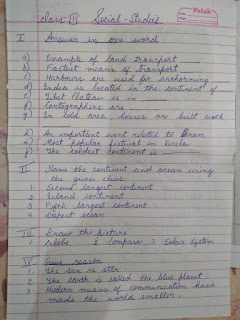 Palak
Class III Social - Studies
I Answer in one word
a) Example of land transport
b) Fastest means of transport
c) Harbours are used for anchoring
d) India is located in the continent of
e) Tibet Plateau is in
f) Cartographers are
g) In cold area houses are built with
h) An important event related to Onam
i) Most popular festival in Kerala
j) The coldest continent is
II Name the continent and ocean using
the given clues:
1 Second largest continent
2 Island continent
3 Fifth largest continent
4 Deepest ocean
III Draw the picture
1 Globe 2 Compass 3 Solar System
IV Give reason
1 The sun is star
2 The earth is called the blue planet
3 Modern means of communication have
made the world smaller.